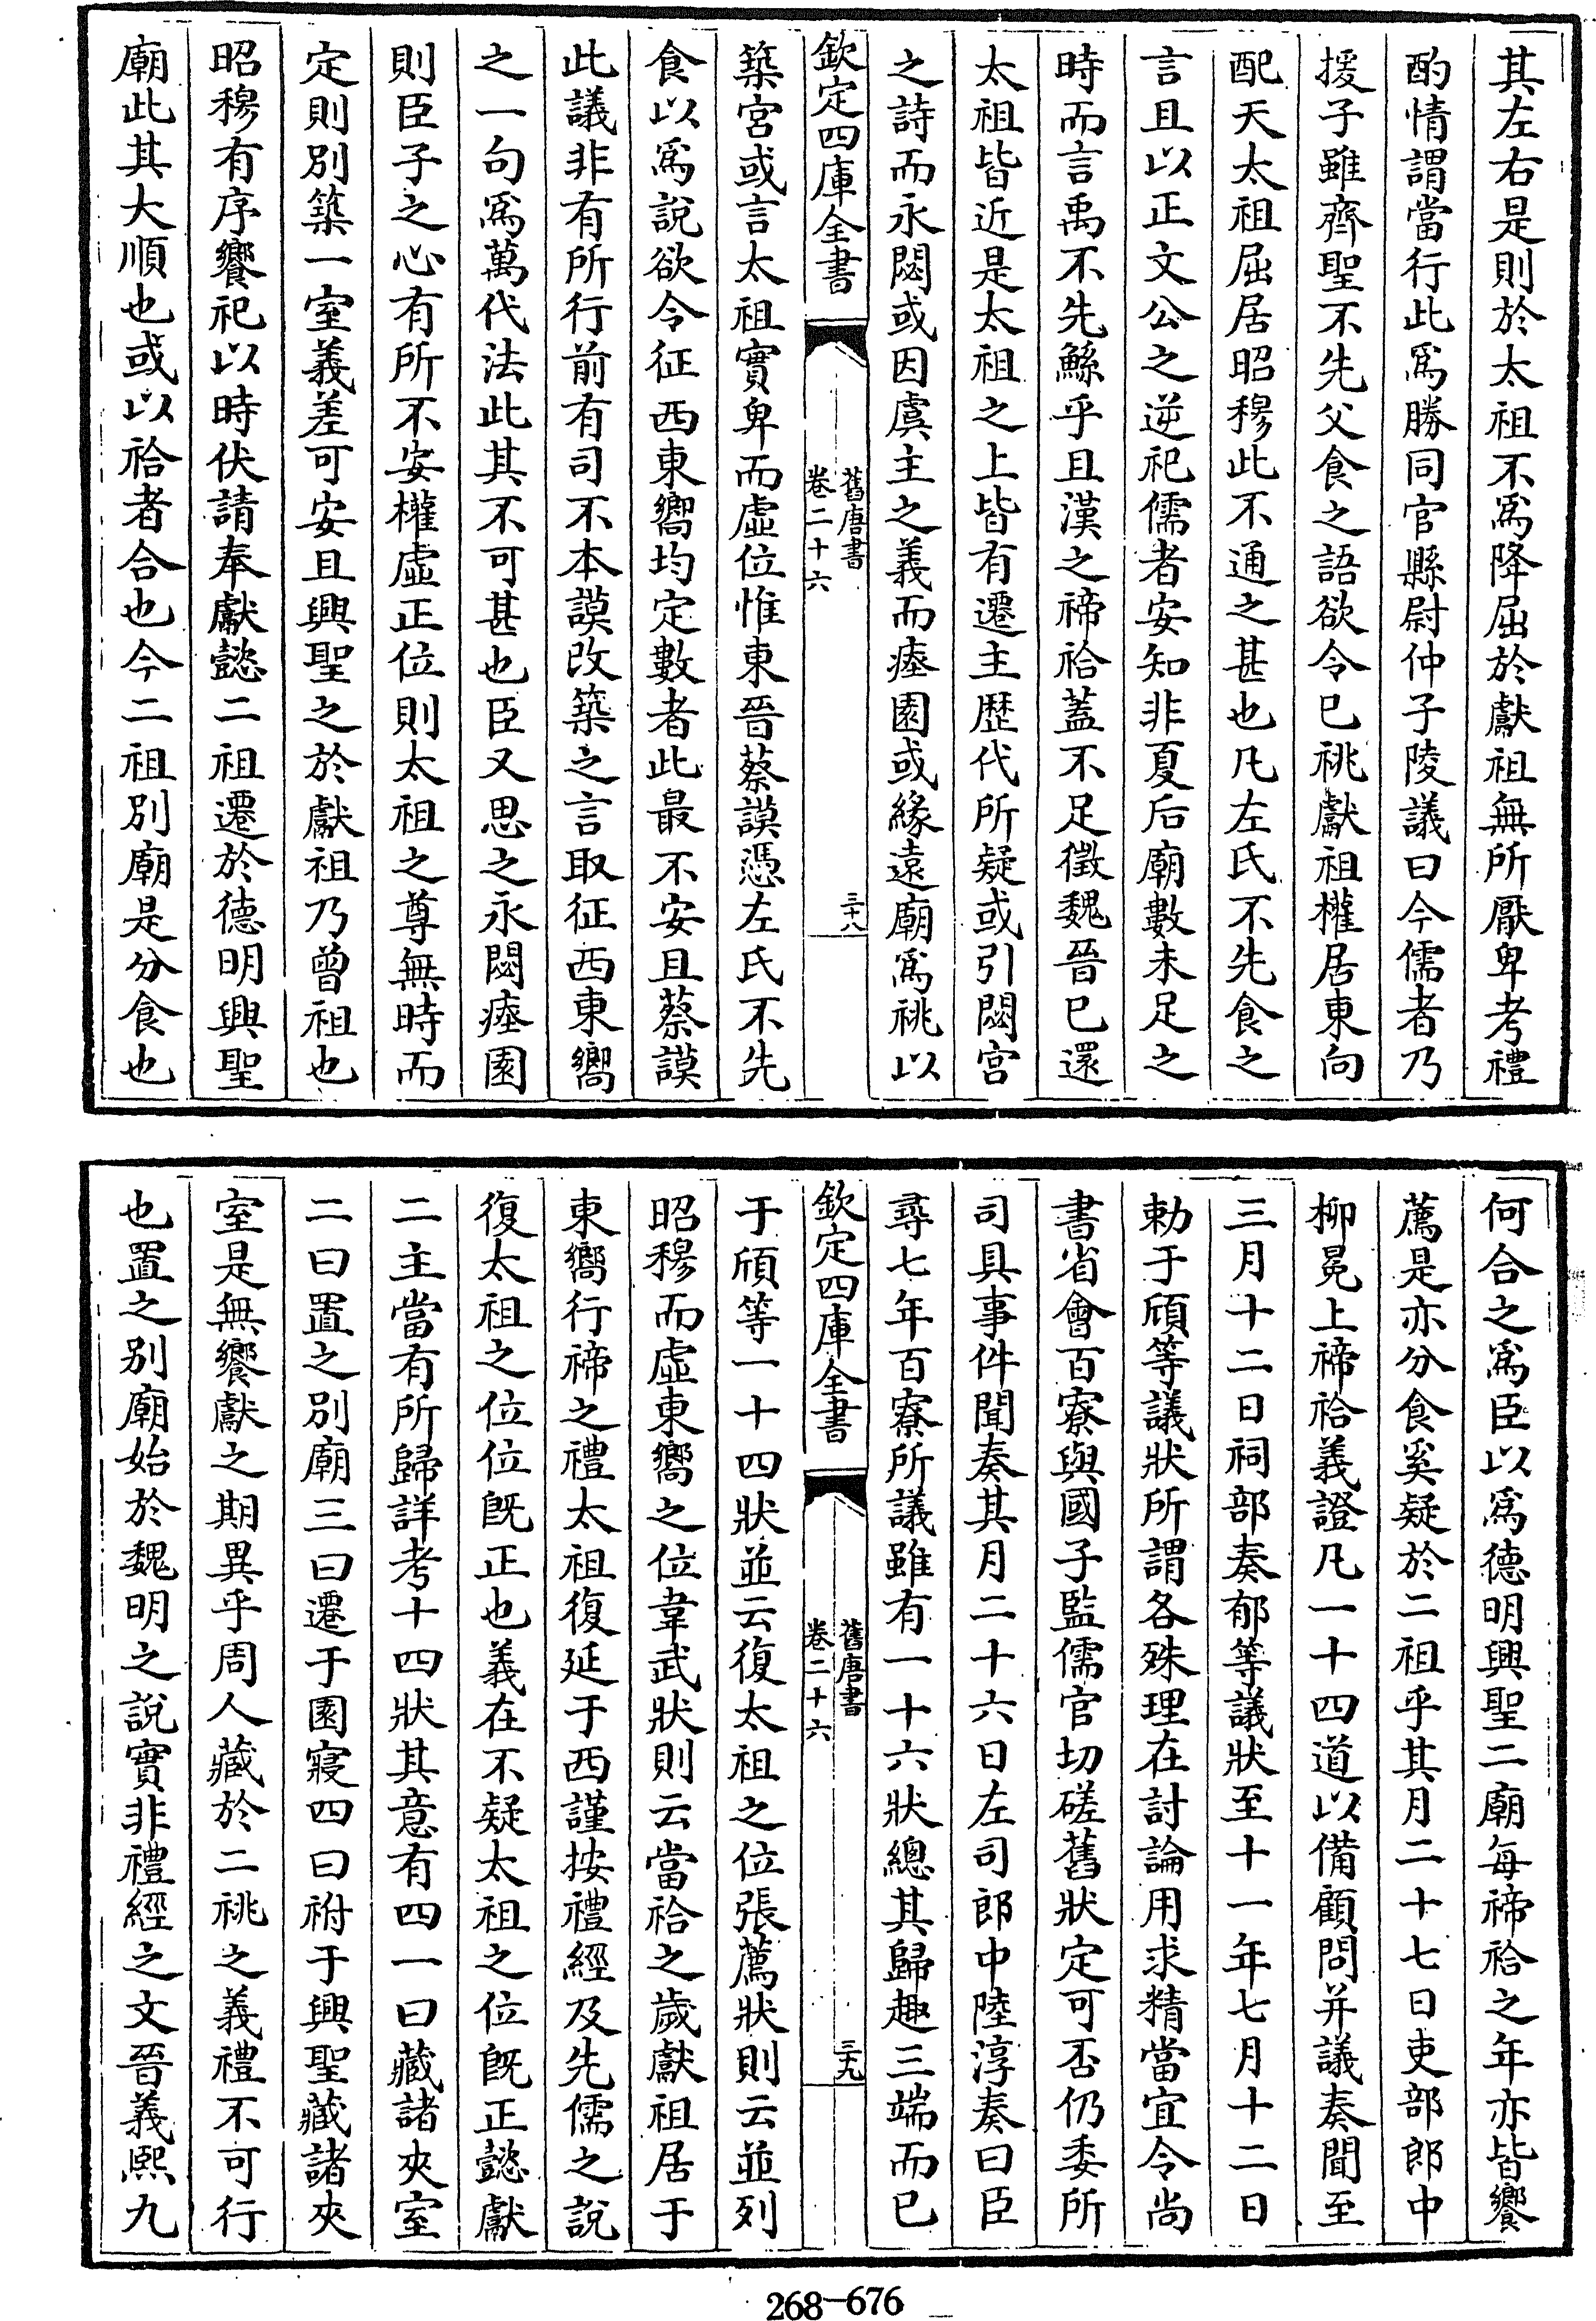 其左右是則於太祖不爲降屈於獻祖無所厭卑考禮
酌情謂當行此爲勝同官縣尉仲子陵議曰今儒者乃
援子雖齊聖不先父食之語欲令已祧獻祖權居東向
配天太祖屈居昭穆此不通之甚也凡左氏不先食之
言且以正文公之逆祀儒者安知非夏后廟數未足之
時而言禹不先鯀乎且漢之禘祫蓋不足徵魏晉已還
太祖皆近是太祖之上皆有遷主歷代所疑或引閟宮
之詩而永閟或因虞主之義而瘞園或緣遠廟爲祧以
欽定四庫全書
舊唐書
卷二十六
三十八
築宮或言太祖實卑而虛位惟東晉蔡謨憑左氏不先
食以爲說欲令征西東嚮均定數者此最不安且蔡謨
此議非有所行前有司不本謨改築之言取征西東嚮
之一句爲萬代法此其不可甚也臣又思之永閟瘞園
則臣子之心有所不安權虛正位則太祖之尊無時而
定則別築一室義差可安且興聖之於獻祖乃曾祖也
昭穆有序饗祀以時伏請奉獻懿二祖遷於德明興聖
廟此其大順也或以祫者合也今二祖別廟是分食也
何合之爲臣以爲德明興聖二廟每禘祫之年亦皆饗
薦是亦分食奚疑於二祖乎其月二十七日吏部郎中
柳冕上禘祫義證凡一十四道以備顧問并議奏聞至
三月十二日祠部奏郁等議狀至十一年七月十二日
勅于頎等議狀所謂各殊理在討論用求精當宜令尚
書省會百寮與國子監儒官切磋舊狀定可否仍委所
司具事件聞奏其月二十六日左司郎中陸淳奏曰臣
尋七年百寮所議雖有一十六狀總其歸趣三端而已
欽定四庫全書
舊唐書
卷二十六
三十九
于頎等一十四狀並云復太祖之位張薦狀則云並列
昭穆而虛東嚮之位韋武狀則云當祫之歲獻祖居于
東嚮行禘之禮太祖復延于西謹按禮經及先儒之說
復太祖之位位既正也義在不疑太祖之位既正懿獻
二主當有所歸詳考十四狀其意有四一曰藏諸夾室
二曰置之別廟三曰遷于園寢四曰祔于興聖藏諸夾
室是無饗獻之期異乎周人藏於二祧之義禮不可行
也置之別廟始於魏明之說實非禮經之文晉義熙九
268-676